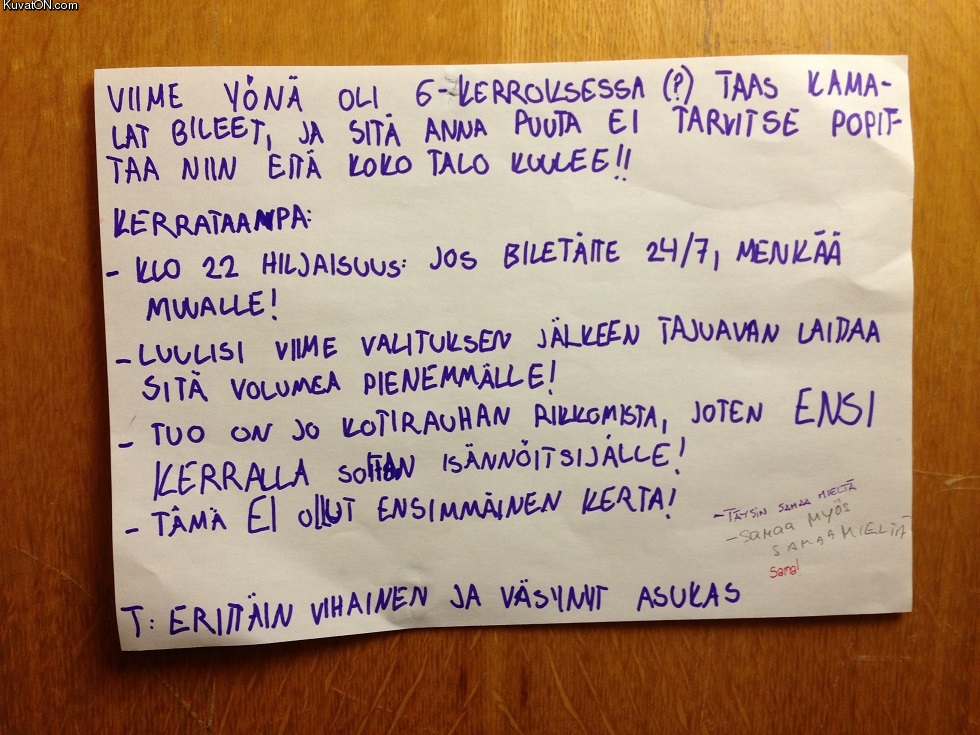 KuvatON.com
VIIME YÖNÄ OLI 6-KERROKSESSA (?) TAAS KAMA-
LAT BILEET, JA SITÄ ANNA PUUTA EI TARVITSE POPIT-
TAA NIIN ETTÄ KOKO TALO KUULEE!!
KERRATAANPA:
- KLO 22 HILJAISUUS: JOS BILETÄTTE 24/7, MENKÄÄ
MUUALLE!
- LUULISI VIIME VALITUKSEN JÄLKEEN TAJUAVAN LAITAA
SITÄ VOLUMEA PIENEMMÄLLE!
- TUO ON JO KOTIRAUHAN RIKKOMISTA, JOTEN ENSI
KERRALLA SOITAN ISÄNNÖITSIJÄLLE!
- TÄMÄ EI OLLUT ENSIMMÄINEN KERTA!
- TÄYSIN SAMAA MIELTÄ
- SAMAA MYÖS
SAMAA MIELTÄ
Sama!
T: ERITTÄIN VIHAINEN JA VÄSYNYT ASUKAS